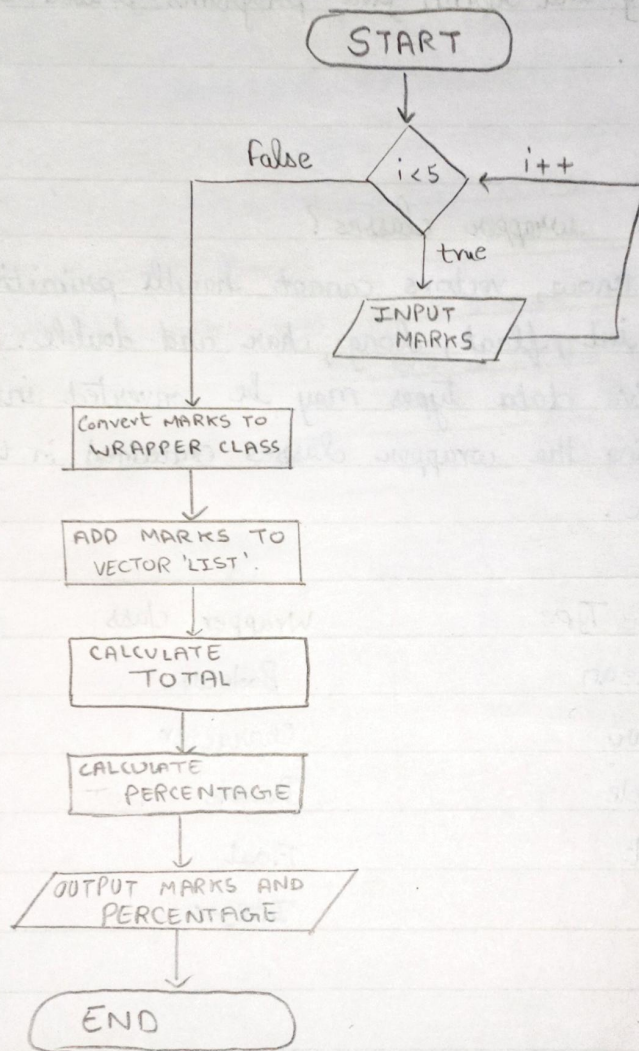 START
False
i<5
i++
true
INPUT
MARKS
Convert MARKS TO
WRAPPER CLASS
ADD MARKS TO
VECTOR 'LIST'.
CALCULATE
TOTAL
CALCULATE
PERCENTAGE
OUTPUT MARKS AND
PERCENTAGE
END